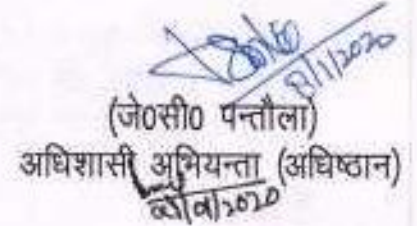 8/1/2020
(जे0सी0 पन्तौला)
अधिशासी अभियन्ता (अधिष्ठान)